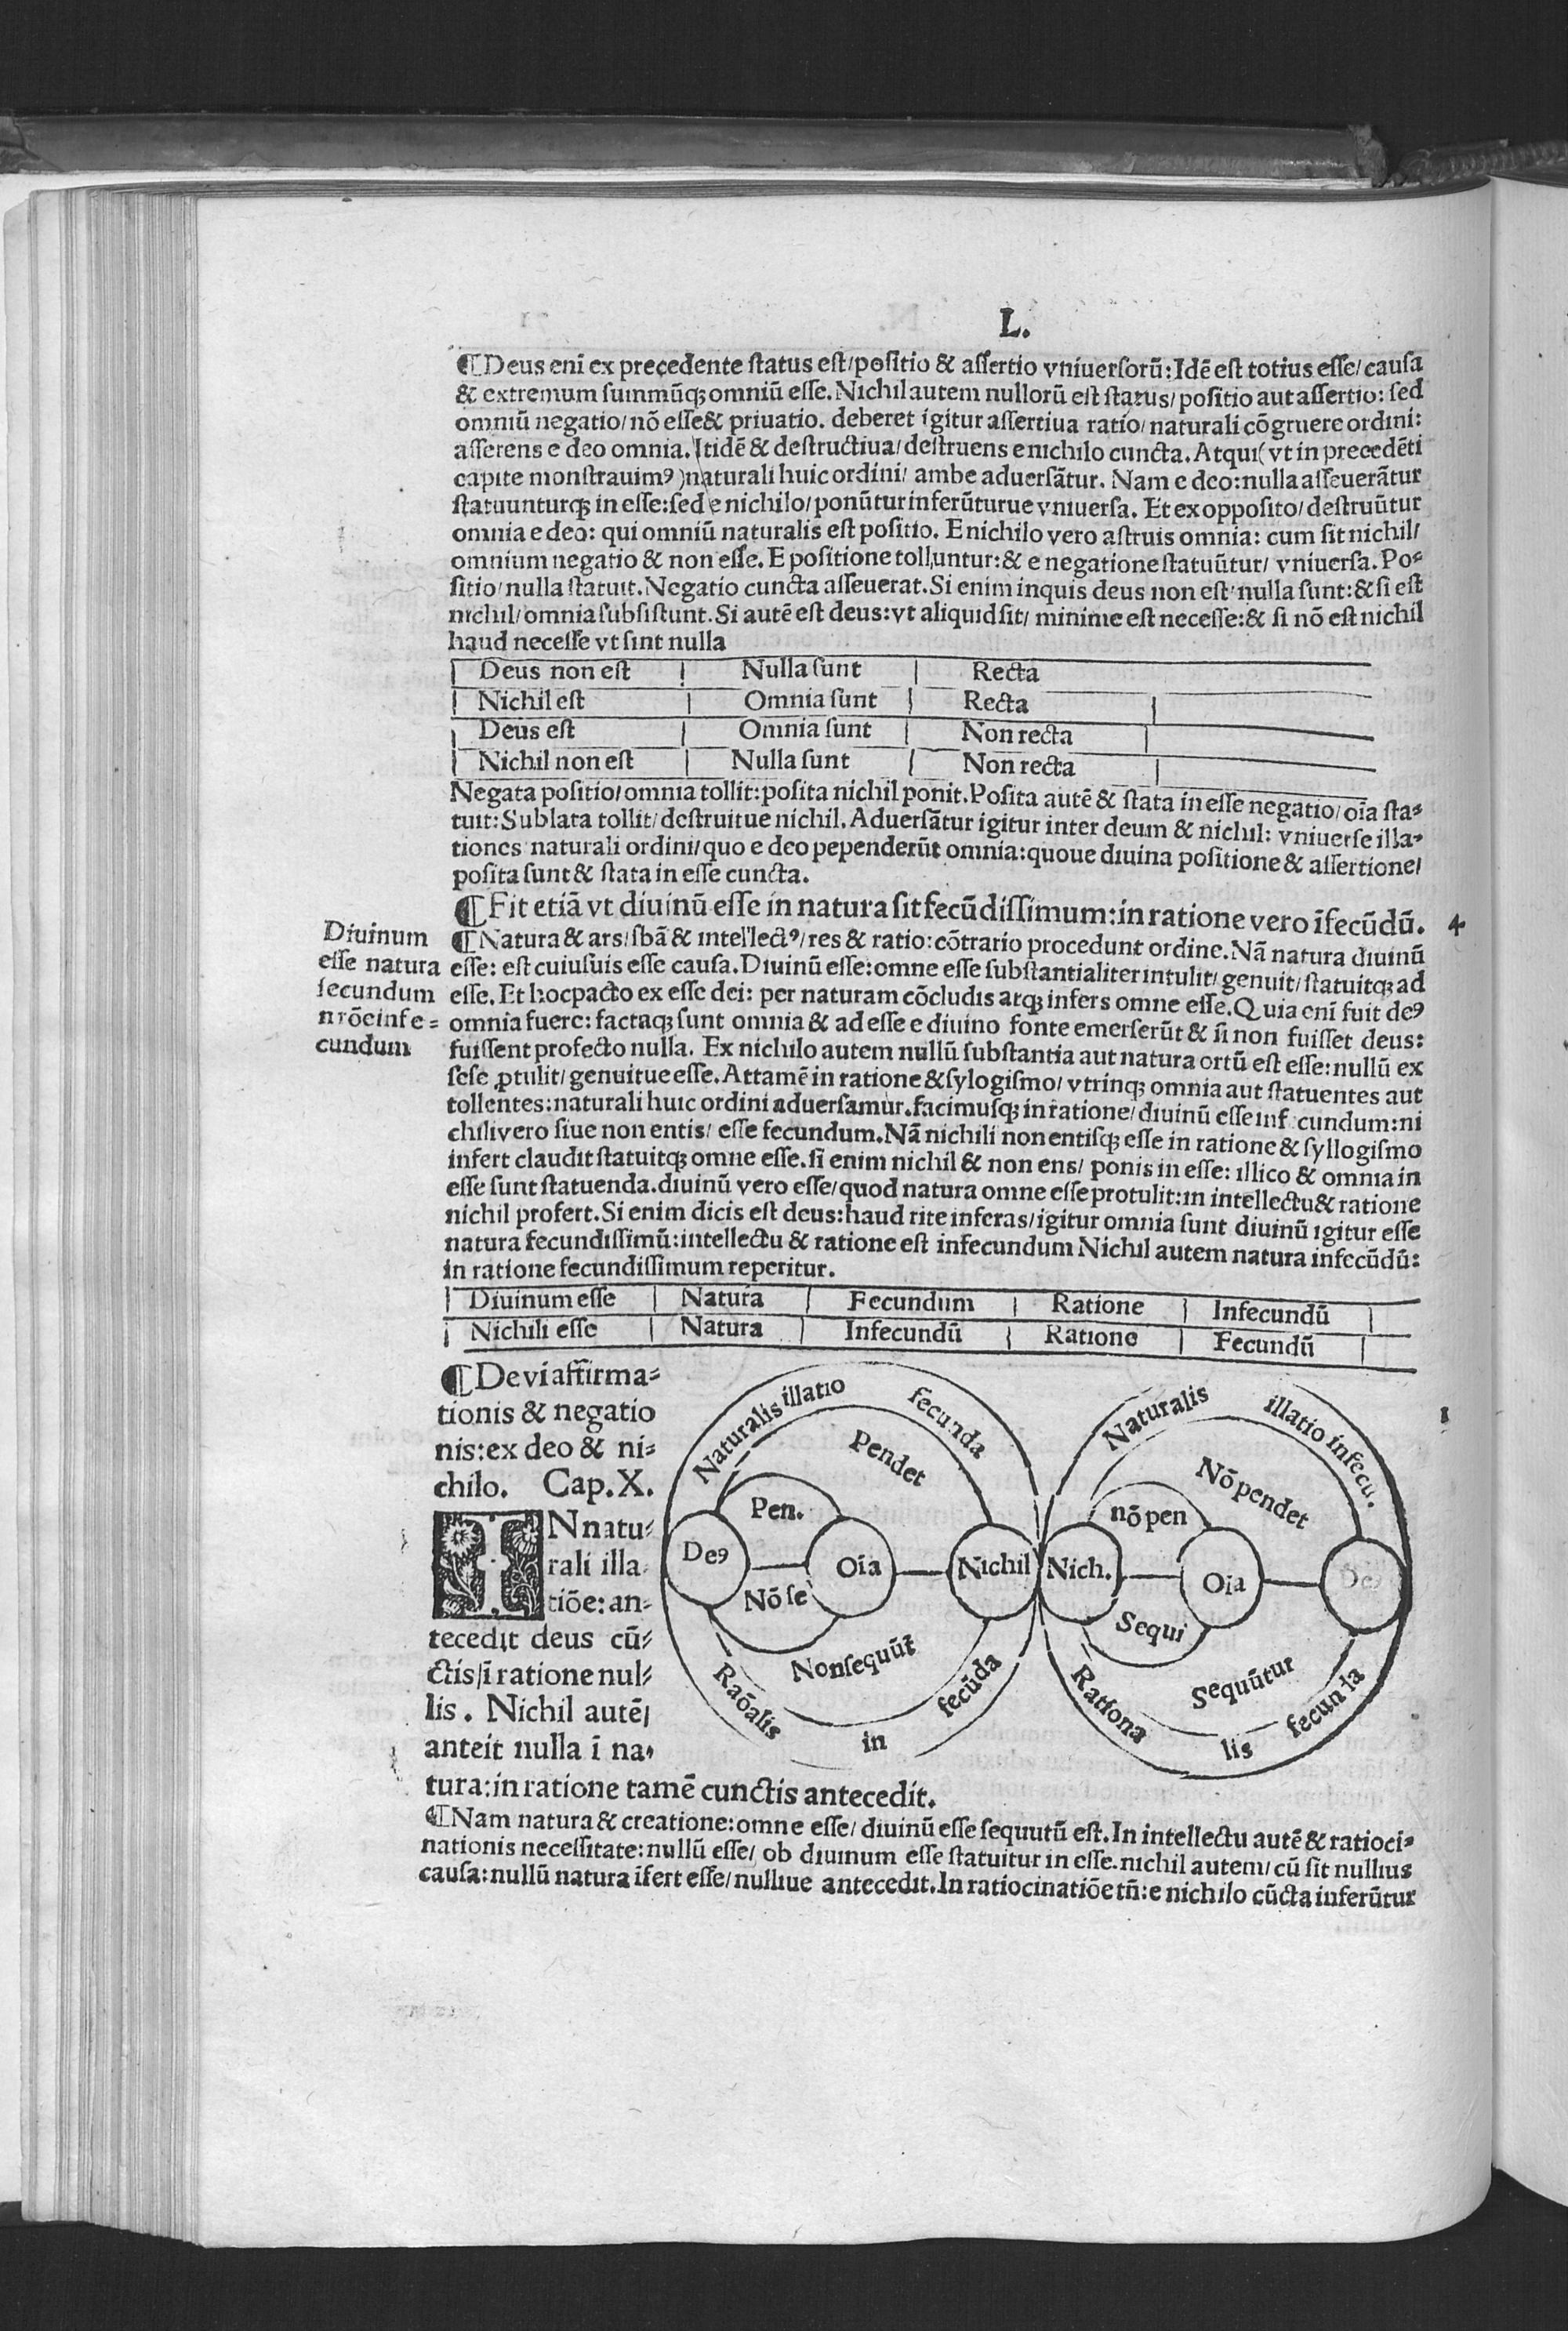 L.
¶Deus enī ex precedente status est/positio & assertio vniuersorū: Idē est totius esse/causa
& extremum summūqꝫ omniū esse. Nichil autem nullorū est status/positio aut assertio: sed
omniū negatio/nō esse & priuatio. deberet igitur assertiua ratio/naturali cōgruere ordini:
asserens e deo omnia. Itidē & destructiua/destruens e nichilo cuncta. Atqui (vt in precedēti
capite monstrauimꝰ) naturali huic ordini/ ambe aduersātur. Nam e deo: nulla asseuerātur
statuunturqꝫ in esse: sed e nichilo/ponūtur inferūturue vniuersa. Et ex opposito/destruūtur
omnia e deo: qui omniū naturalis est positio. E nichilo vero astruis omnia: cum sit nichil/
omnium negatio & non esse. E positione tolluntur: & e negatione statuūtur/ vniuersa. Po-
sitio/nulla statuit. Negatio cuncta asseuerat. Si enim inquis deus non est/nulla sunt: & si est
nichil/omnia subsistunt. Si autē est deus: vt aliquid sit/ minime est necesse: & si nō est nichil
haud necesse vt sint nulla
Deus non est | Nulla sunt | Recta
Nichil est | Omnia sunt | Recta
Deus est | Omnia sunt | Non recta
Nichil non est | Nulla sunt | Non recta
Negata positio/omnia tollit: posita nichil ponit. Posita autē & stata in esse negatio/oīa sta-
tuit: Sublata tollit/destruitue nichil. Aduersātur igitur inter deum & nichil: vniuerse illa-
tiones naturali ordini/quo e deo pependerūt omnia: quoue diuina positione & assertione/
posita sunt & stata in esse cuncta.
¶Fit etiā vt diuinū esse in natura sit fecūdissimum: in ratione vero īfecūdū. 4
Diuinum
esse natura
fecundum
nrōe infe-
cundum
¶Natura & ars/sbā & intellectꝰ/res & ratio: cōtrario procedunt ordine. Nā natura diuinū
esse: est cuiusuis esse causa. Diuinū esse: omne esse substantialiter intulit/genuit/statuitqꝫ ad
esse. Et hoc pacto ex esse dei: per naturam cōcludis atqꝫ infers omne esse. Quia enī fuit deꝰ
omnia fuere: factaqꝫ sunt omnia & ad esse e diuino fonte emerserūt & si non fuisset deus:
fuissent profecto nulla. Ex nichilo autem nullū substantia aut natura ortū est esse: nullū ex
sese ꝓtulit/genuitue esse. Attamē in ratione & sylogismo/vtrinqꝫ omnia aut statuentes aut
tollentes: naturali huic ordini aduersamur. facimusqꝫ in ratione/diuinū esse inf cundum: ni
chili vero siue non entis/ esse fecundum. Nā nichili non entisqꝫ esse in ratione & syllogismo
infert claudit statuitqꝫ omne esse. si enim nichil & non ens/ ponis in esse: illico & omnia in
esse sunt statuenda. diuinū vero esse/quod natura omne esse protulit: in intellectu & ratione
nichil profert. Si enim dicis est deus: haud rite inferas/igitur omnia sunt diuinū igitur esse
natura fecundissimū: intellectu & ratione est infecundum Nichil autem natura infecūdū:
in ratione fecundissimum reperitur.
Diuinum esse | Natura | Fecundum | Ratione | Infecundū
Nichili esse | Natura | Infecundū | Ratione | Fecundū
¶De vi affirma-
tionis & negatio
nis: ex deo & ni-
chilo. Cap. X.
INnatu-
rali illa-
tiōe: an-
tecedit deus cū-
ctis/ī ratione nul-
lis. Nichil autē/
anteit nulla ī na-
Naturalis illatio fecunda
Pendet
Pen.
Deꝰ
Oīa
Nichil
Nō se
Nonsequūt̄
Raōalis in fecūda
Naturalis illatio infecu.
Nō pendet
nō pen
Nich.
Oīa
Deꝰ
Sequi
Sequūtur
Rationalis fecunda
1
tura: in ratione tamē cunctis antecedit.
¶Nam natura & creatione: omne esse/ diuinū esse sequutū est. In intellectu autē & ratioci-
nationis necessitate: nullū esse/ ob diuinum esse statuitur in esse. nichil autem/ cū sit nullius
causa: nullū natura īfert esse/nulliue antecedit. In ratiocinatiōe tn̄: e nichilo cūcta inferūtur